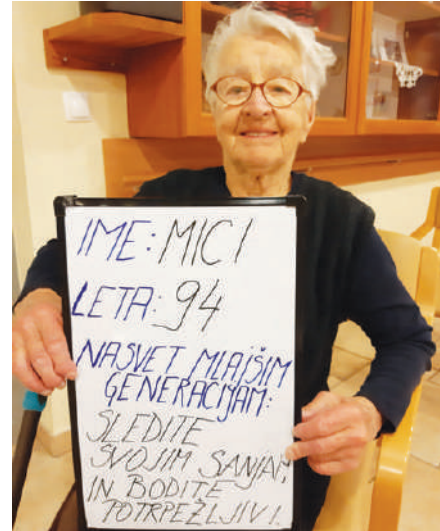 IME: MICI
LETA: 94
NASVET MLAJŠIM
GENERACIJAM:
SLEDITE
SVOJIM SANJAM,
IN BODITE
POTRPEŽLJIVI.